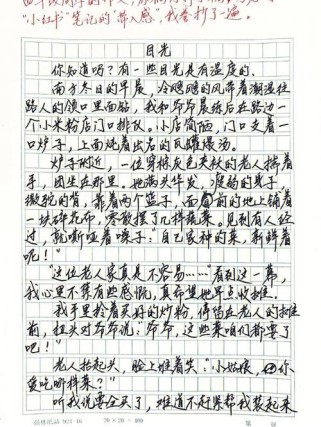 "小红书"笔记的"带入感",我要抄了一遍。
目光
你知道吗?有一些目光是有温度的。
南方冬日的早晨,冷飕飕的风带着潮湿往
路人的领口里面钻,我和爷爷晨练后在路边一
个小米粉店门口排队。小店简陋,门口支着一
口炉子,上面炖着出名的瓦罐煨汤。
炉子附近,一位穿棉灰色夹袄的老人揣着
手,团坐在那里。她满头华发,瘦弱的身子,
微驼的背,靠着两个篮子,面前的地上铺着
一块碎花布,零散摆了几样蔬菜。见到有人经
过,就嘶哑着嗓子:"自己家种的菜,新鲜着
呢!"
"这位老人家真是不容易……"看到这一幕,
我心里不禁有些感慨,真希望她早点收摊。
我手里拎着买好的炒粉,停留在老人的摊
前,扭头对爷爷说:爷爷,这些菜咱们都要了
吧!"
老人抬起头,脸上堆着笑:"小姑娘,你
要吃哪样菜?"
听我说要全买了,难道不赶紧帮我装起来
20×20=400
第 页